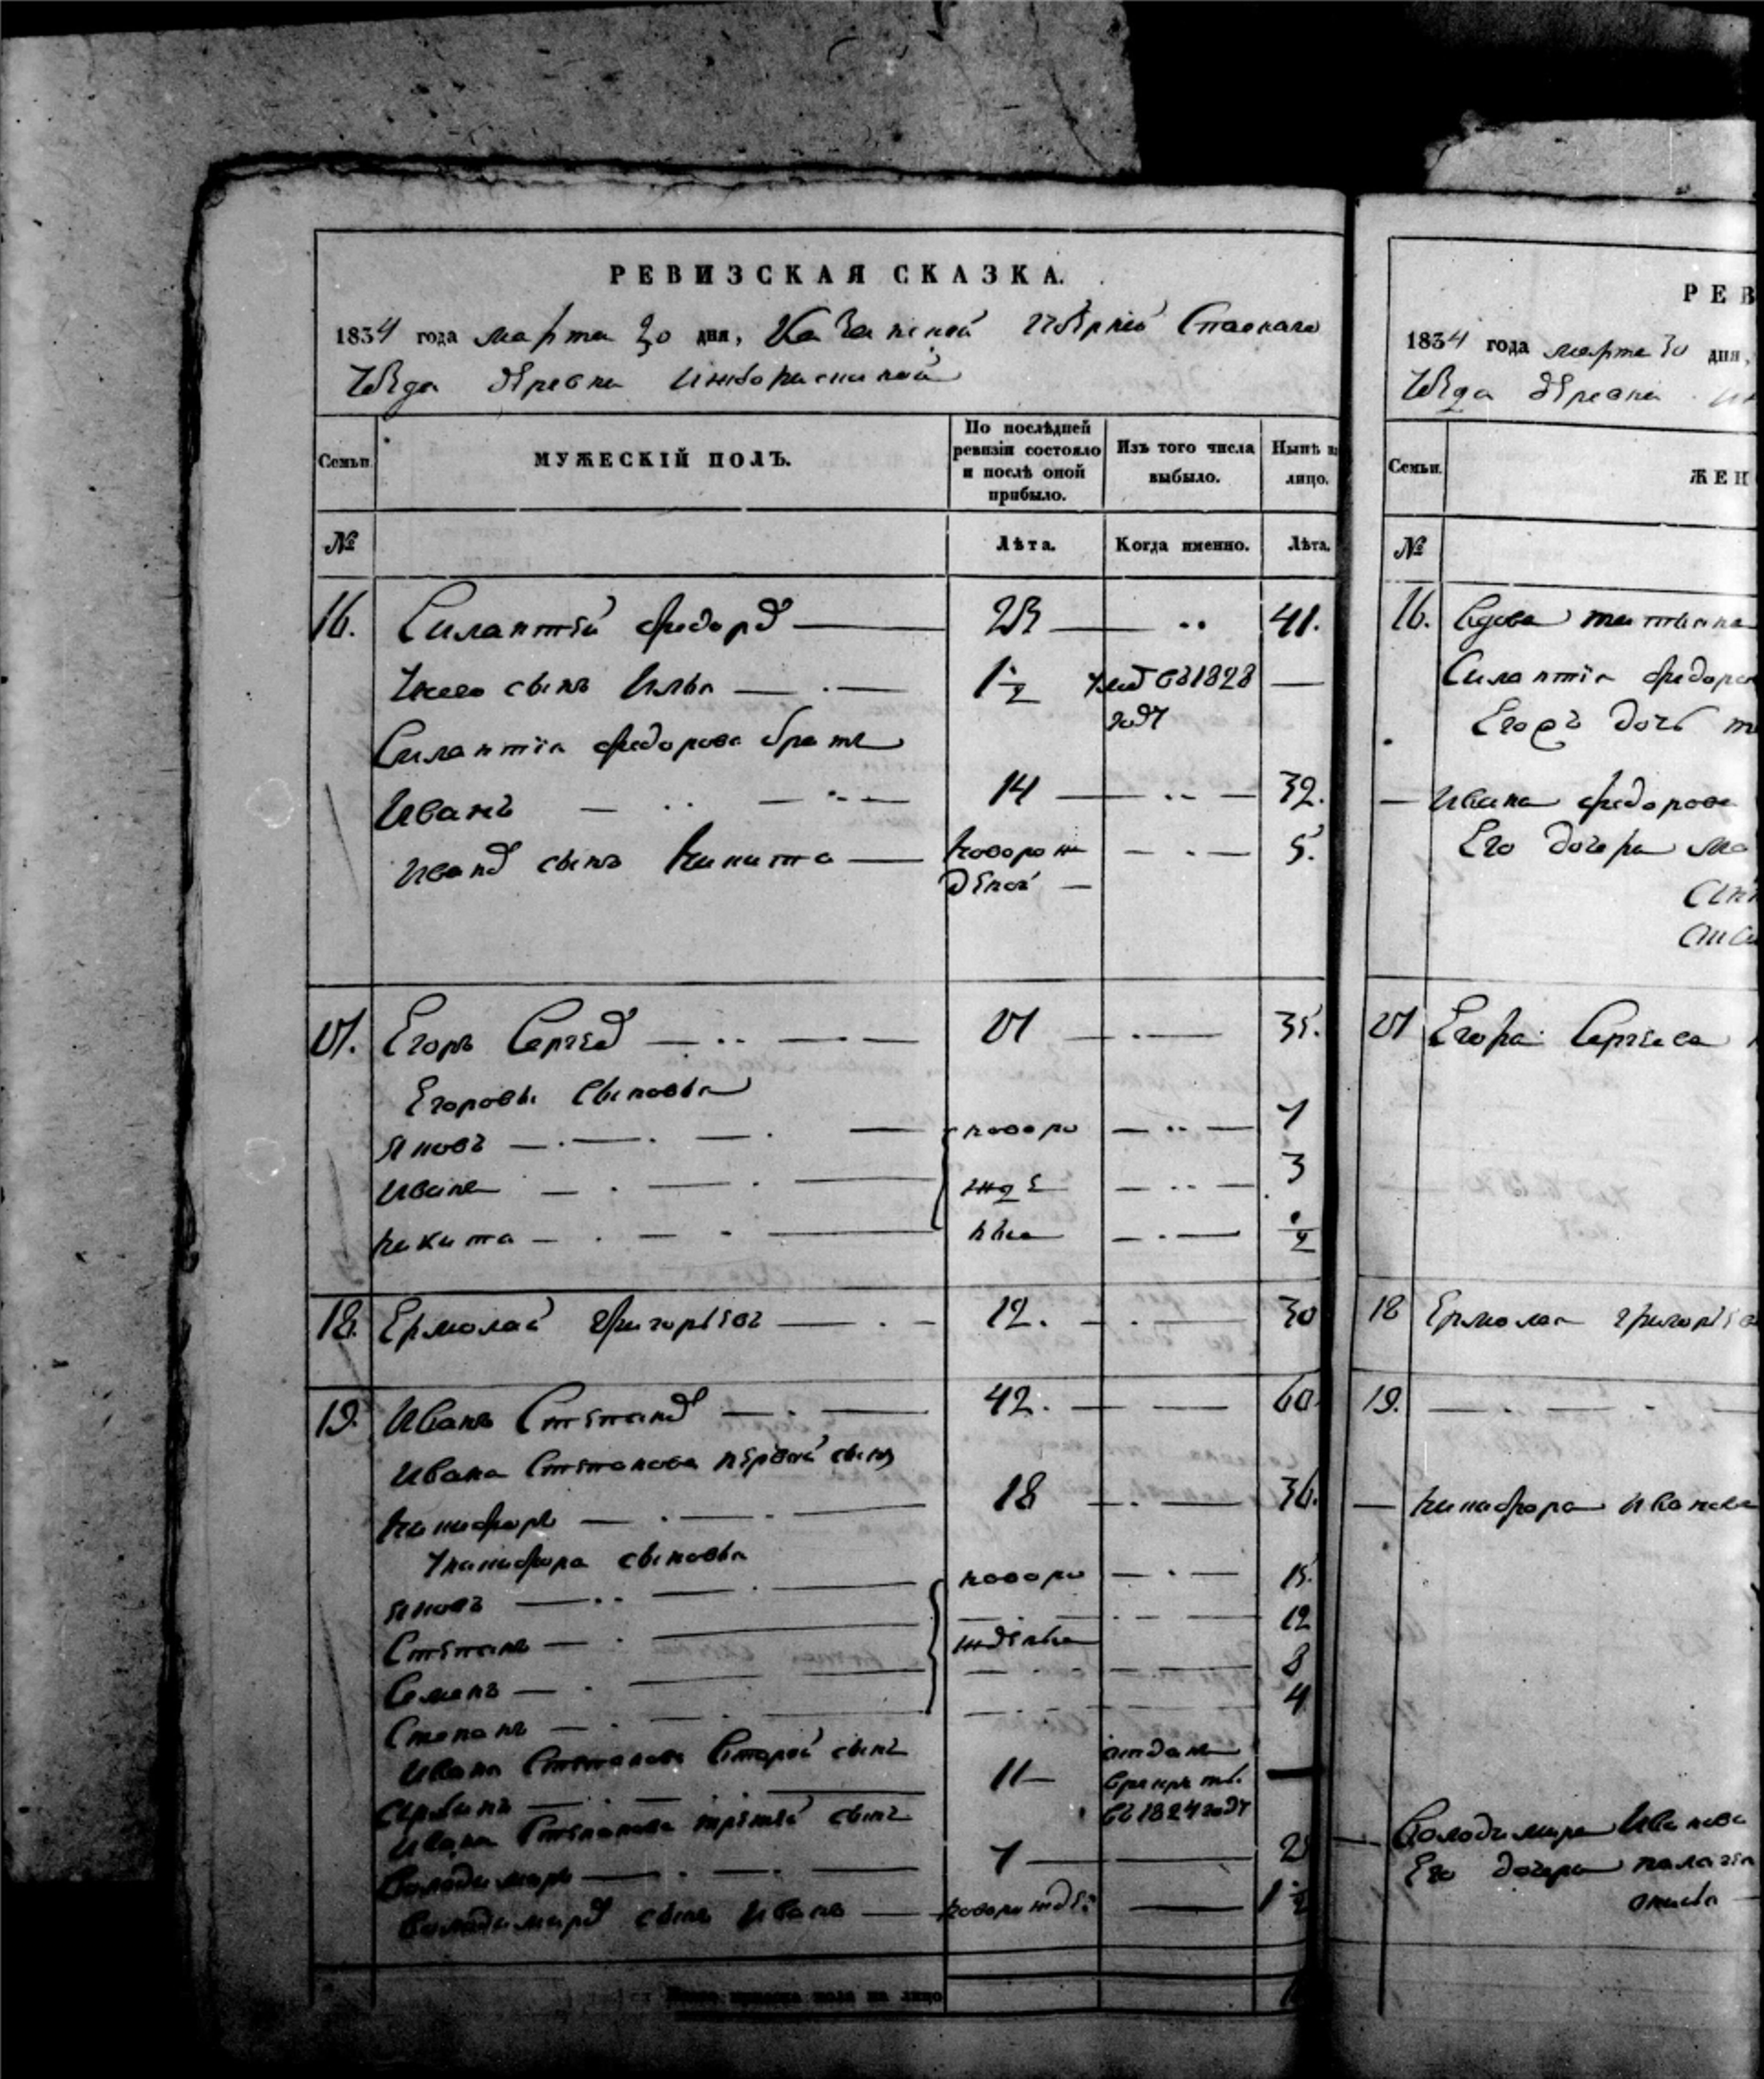 РЕВИЗСКАЯ СКАЗКА.
1834 года марта 30 дня, Казанской Губерніи Спаскаго
Уезда деревни
Семьи. МУЖЕСКІЙ ПОЛЪ. По послѣдней ревизіи состояло и послѣ оной прибыло. Изъ того числа выбыло. Нынѣ на лицо.
№ Лѣта. Когда именно. Лѣта.
16. Силантій Федоровъ 23 41.
У него сынъ Илья 1 1/2 умеръ въ 1828 году
Силантія Федорова братъ
Иванъ 14 32.
Ивановъ сынъ Никита новорожденой 5.
17. Егоръ Сергеевъ 17 35.
Егоровы сыновья
Яковъ новоро 7
Иванъ жде 3
Никита ные 1/2
18. Ермолай Григорьевъ 12. 30
19. Иванъ Степановъ 42. 60
Ивана Степанова первой сынъ
Никифоръ 18 36.
У Никифора сыновья
Яковъ новоро 15
Степанъ жденые 12
Семенъ 8
Степанъ 4
Ивана Степанова второй сынъ
11 отданъ в рекруты въ 1824 году
Ивана Степанова третей сынъ
Володимиръ 7 2
Володимировъ сынъ Иванъ новорожде 1 1/2
РЕВ
1834 года марта 30 дня,
Уезда деревни
Семьи. ЖЕН
№
16. Вдова Татьяна
Силантія Федоро
Егоръ дочь
Ивана Федорова
Его дочери
17 Егора Сергеева
18 Ермолая Григорьева
19.
Никифора Иванова
Володимира Иванова
Его дочери